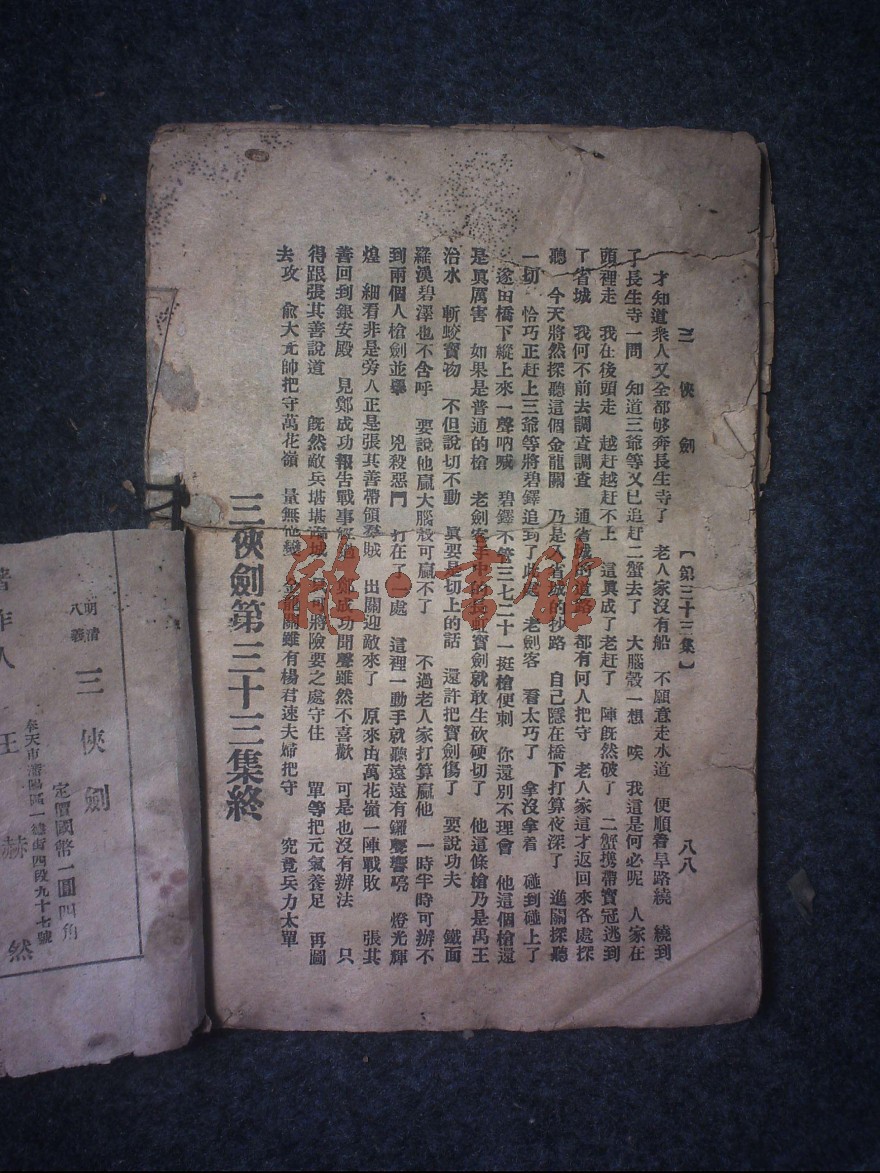 三俠劍 【第三十三集】 八八
才知道衆人又全都够奔長生寺了 老人家沒有船 不願意走水道 便順着旱路繞 繞到
子長生寺一問 知道三爺等又已追赶二蟹去了 大腦殼一想 唉 我這是何必呢 人家在
頭裡走 我在後頭走 越赶越赶不上 這眞成了老赶了 陣旣然破了 二蟹携帶寶冠逃到
了省城 我何不前去調查調查 通省城的道路 都有何人把守 老人家這才返回來各處探
聽 今天將然探聽這個金龍關 乃是入省城的抄路 自己隱在橋下打算夜深了 進關探聽
一切 恰巧正赶上三爺等將碧鐸追到了此處 老劍客 看太巧了 拿沒拿着 碰到碰上了
遂由橋下縱上來一聲吶喊 碧鐸不管三七二十一挺槍便刺 你還別不理會 他這個槍還
是眞厲害 如果是普通的槍 老劍客手中的長虹寶劍就敢生砍硬切了 他這條槍乃是禹王
治水 斬蛟寶物 不但說切不動 眞要是切上的話 還許把寶劍傷了 要說功夫 鐵面
羅漢碧澤也不含呼 要說他贏大腦殼可贏不了 不過老人家打算贏他 一時半時可辦不
到兩個人槍劍並舉 兇殺惡鬥 打在了一處 這裡一動手就聽遠遠有鑼聲響喨 燈光輝
煌 細看非是旁人正是張其善帶領羣賊 出關迎敵來了 原來由萬花嶺一陣戰敗 張其
善回到銀安殿 見鄭成功報告戰事經過 鄭成功聞聲雖然不喜歡 可是也沒有辦法 只
得跟張其善說道 旣然敵兵堪堪臨城 可將險要之處守住 單等把元氣養足 再圖
去攻 俞大元帥把守萬花嶺 量無他變 金龍關雖有楊君速夫婦把守 究竟兵力太單
三俠劍第三十三集終
明清八義 三俠劍
定價國幣一圓四角
奉天市瀋陽區一德街四段九十七號
著作人 王赫然
雅·書館